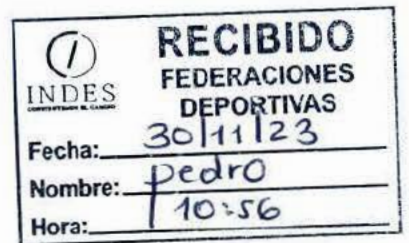 RECIBIDO
FEDERACIONES
DEPORTIVAS
INDES
Fecha: 30/11/23
Nombre: pedro
Hora: 10:56